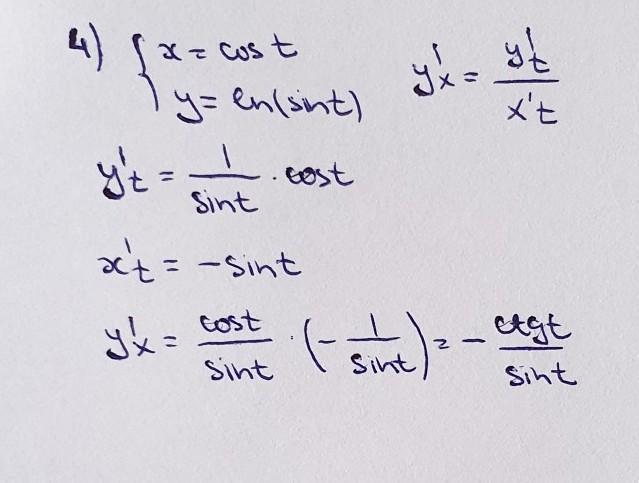 4) { x = cost
y = ln(sint)
y'x = y't / x't
y't = 1/sint · cost
x't = -sint
y'x = cost/sint · (-1/sint) = - ctgt/sint